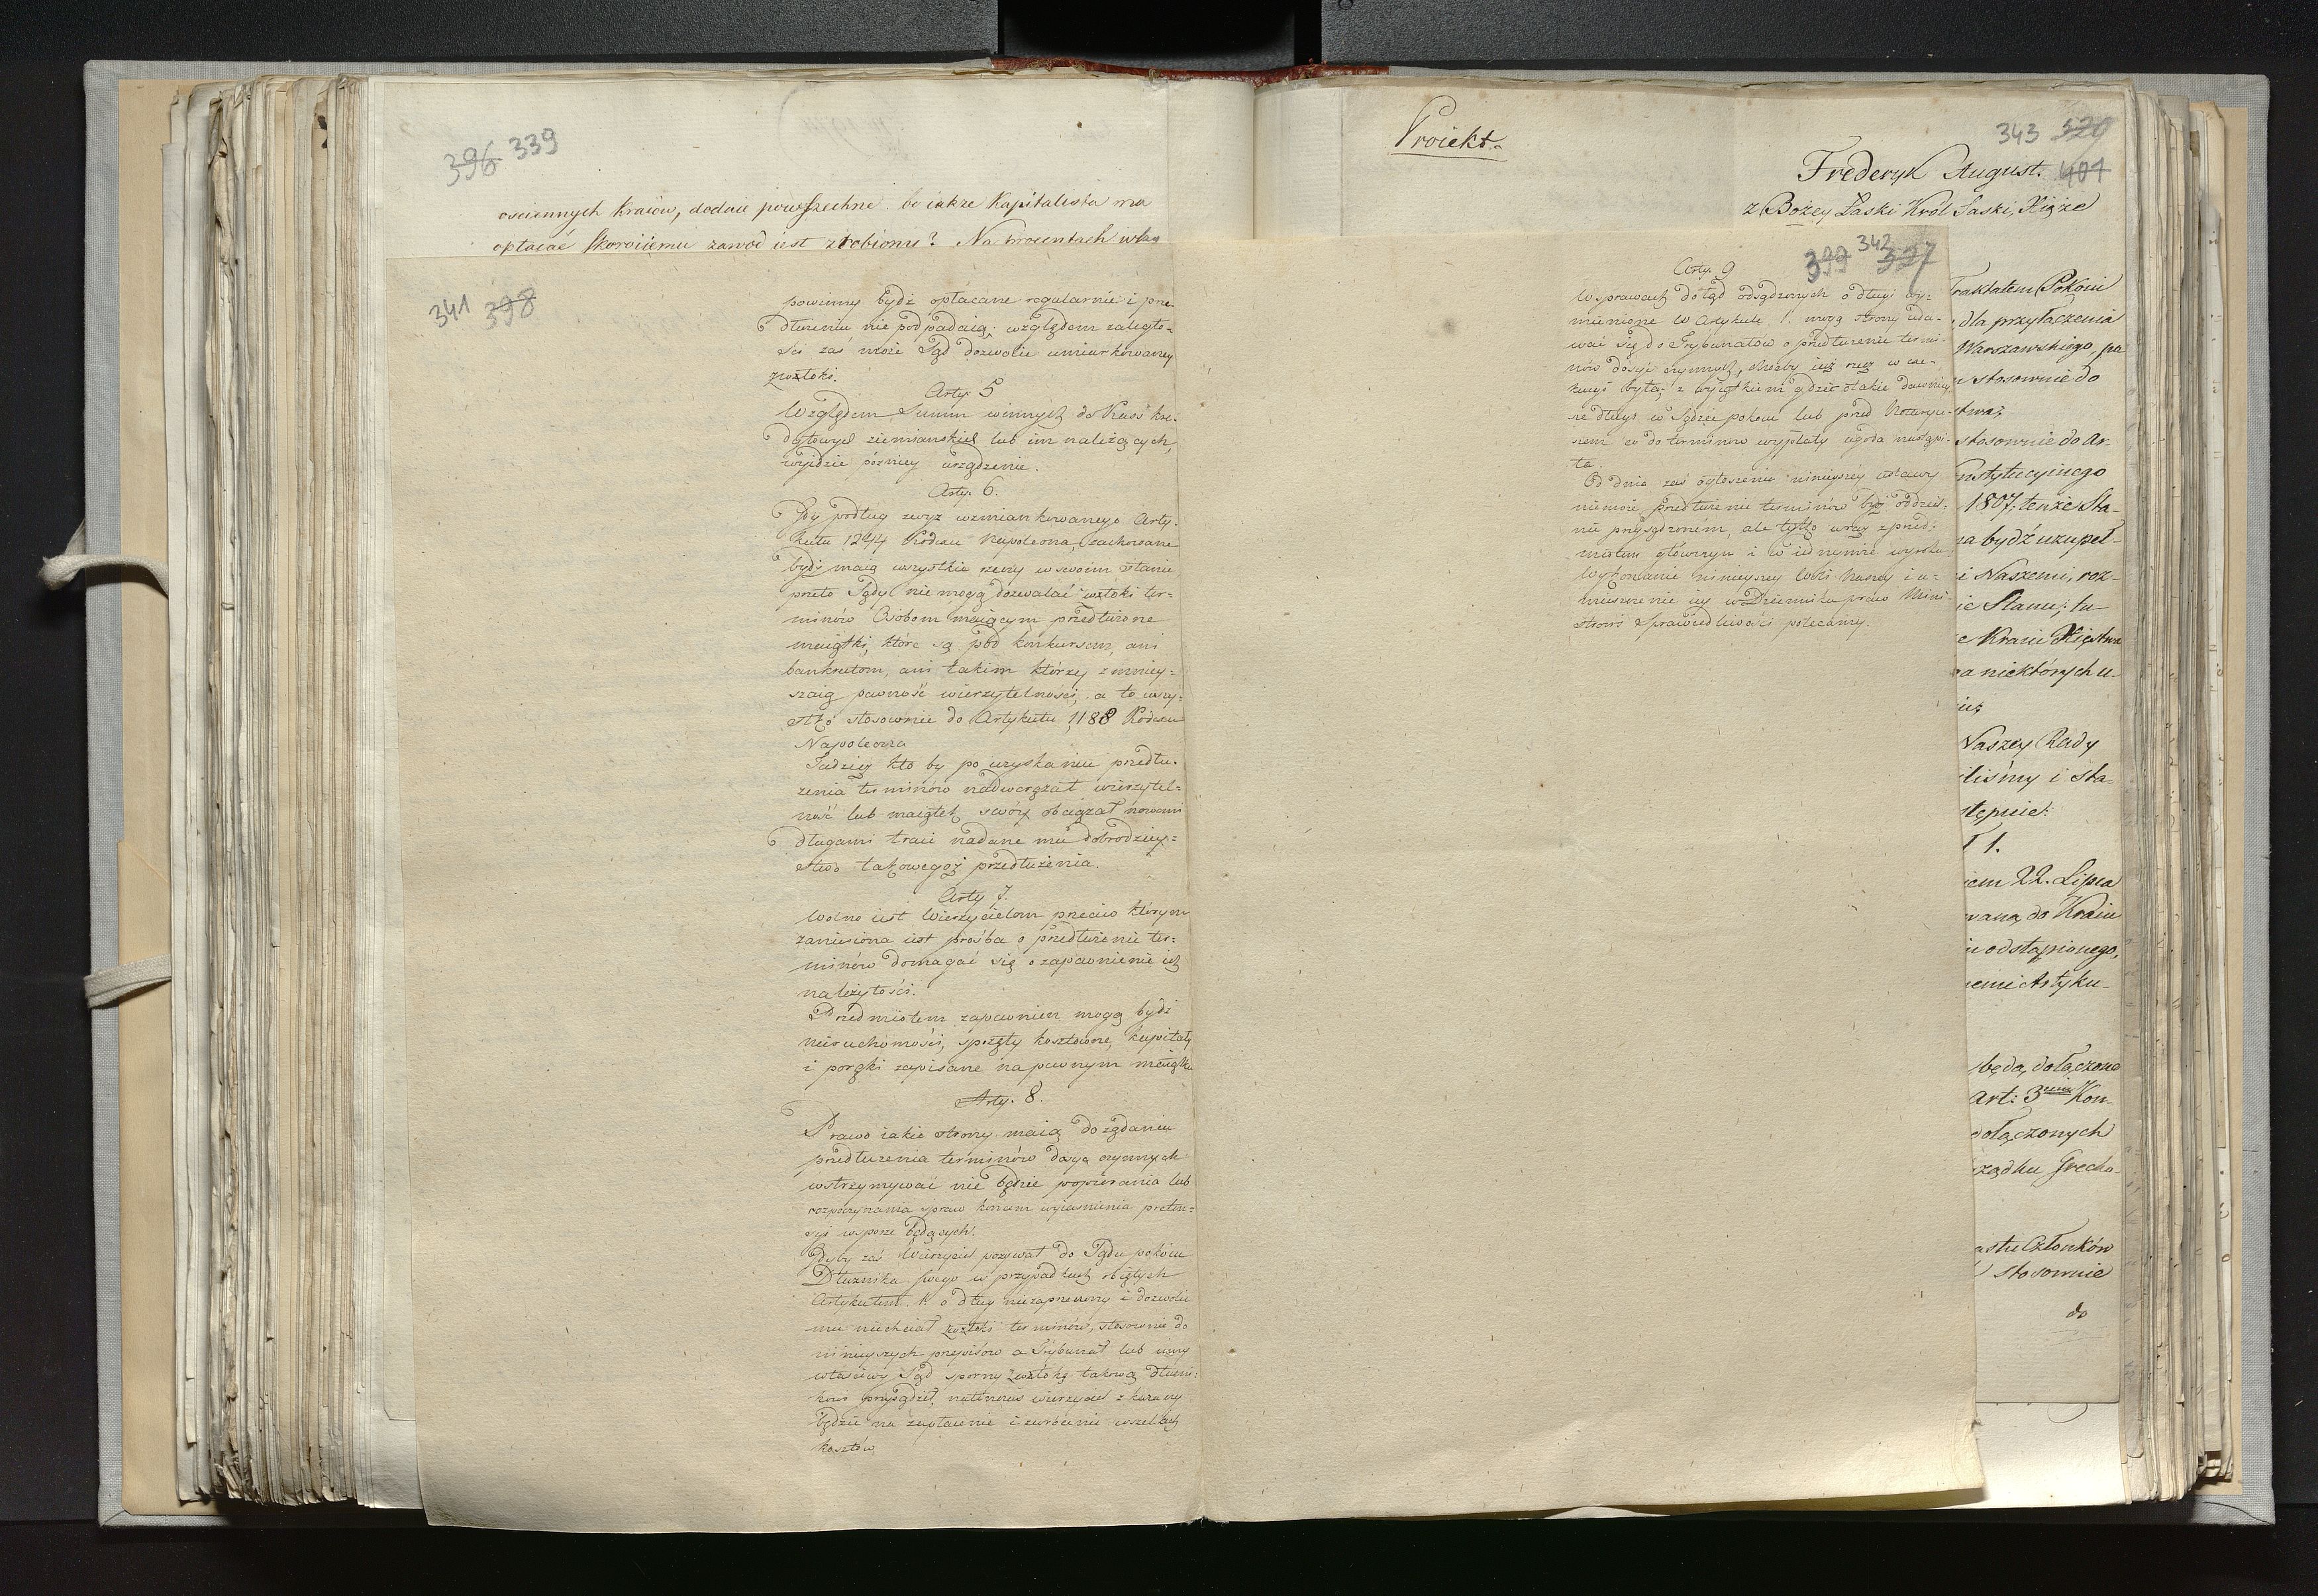 396 339
osciennych kraiów, dodaie powszechne. bo iakże Kapitalista ma
opłacać skoro iiemu zawod iest zrobiony? Na procentach
341 398
powinny bydź opłacane regularnie i prze-
dłużeniu nie podpadaią; względem zaległo-
ści zaś może Sąd dozwolić umiarkowaney
zwłoki.
Arty. 5
Względem Summ winnych do Kass kre-
dytowych ziemianskich lub im należących,
wyidzie pózniey urządzenie.
Arty. 6.
Gdy podług wyż wzmiankowanego Arty-
kułu 1244 Kodexu Napoleona, zachowane
bydź maią wszystkie rzeczy w swoim stanie
przeto Sądy nie mogą dozwalać zwłoki ter-
minów Osobom maiącym przedłużone
maiątki, które są pod konkursem, ani
bankrutom, ani takim którzy zmniey-
szaią pewność wierzytelności, a to wszy-
stko stosownie do Artykułu 1188 Kodexu
Napoleona
Tudzież kto by po uzyskaniu przedłu-
żenia terminów nadwerężał wierzytel-
ność lub maiątek swóy obciążał nowemi
długami traci nadane mu dobrodziey-
stwo takowegoż przedłużenia.
Arty 7.
Wolno iest Wierzycielom przeciw którym
zaniesiona iest prośba o przedłużenie ter-
minów domagać się o zapewnienie ich
należytości.
Przedmiotem zapewnien mogą bydź
nieruchomości, sprzęty kosztowne, kapitały
i poręki zapisane na pewnym maiątku
Arty. 8.
Prawo iakie strony maią do żądania
przedłużenia terminów dosyć czynnych
wstrzymywać nie będzie popierania lub
rozpoczynania spraw końcem wyiaśnienia preten-
syi w sporze będących.
Gdyby zaś Wierzyciel pozywał do Sądu pokoiu
Dłużnika swego w przypadkach obiętych
Artykułem 1. o dług niezaprzeczony i dozwolić
mu niechciał zwłoki terminów, stosownie do
ninieyszych przepisów a Trybunał lub inny
właściwy Sąd sporny zwłokę takową dłużni-
kowi przysądził, natenczas wierzyciel skazany
będzie na zapłacenie i zwrócenie wszelkich
kosztów.
Proiekt.
343 401
Frederyk August.
z Bożey Łaski Król Saski, Xiąże
399 342 397
Arty. 9
W sprawach dotąd osądzonych o długi wy-
mienione w Artykule 1. mogą strony uda-
wać się do Trybunałów o przedłużenie termi-
nów dosyć czynnych, choćby iuż rzecz w exe-
kucyi była; z wyiątkiem gdzie o takie dawniey-
sze długi w Sądzie pokoiu lub przed Notaryu-
szem co do terminów wypłaty ugoda nastąpi-
ła.
Od dnia zaś ogłoszenia ninieyszey ustawy
niemoże przedłużenie terminów być oddziel-
nie przysądzoném, ale tylko wraz z przed-
miotem głównym i w iednymże wyroku.
Wykonanie ninieyszey woli Naszey i u-
mieszczenie iey w Dzienniku praw Mini-
strowi sprawiedliwości polecamy.
Traktatem Pokoiu
dla przyłączenia
Warszawskiego, pa
stosownie do
stwa;
stosownie do Ar-
nstytucyinego
1807. tenże Sta-
a bydź uzupeł-
i Naszemi, roz-
ie Stanu; tu-
e Kraiu Xięstwa
a niektórych u-
Naszey Rady
iliśmy i sta-
stępuie:
T 1.
iem 22. Lipca
waną do Kraiu
u odstąpionego,
iemi Artyku-
będą dołączone
Art: 3 Kon-
dołączonych
rządku Grecko-
astu Członków
stosownie
do